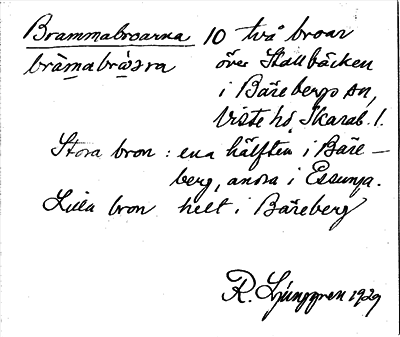 Brammabroarna 10 två broar
bràmabrȧ̀ɔra över Stallbäcken
i Bärebergs sn,
Viste hd Skarab. l.
Stora bron : ena hälften i Bäre-
berg, andra i Essunga.
Lilla bron helt i Bäreberg
R. Ljunggren 1929